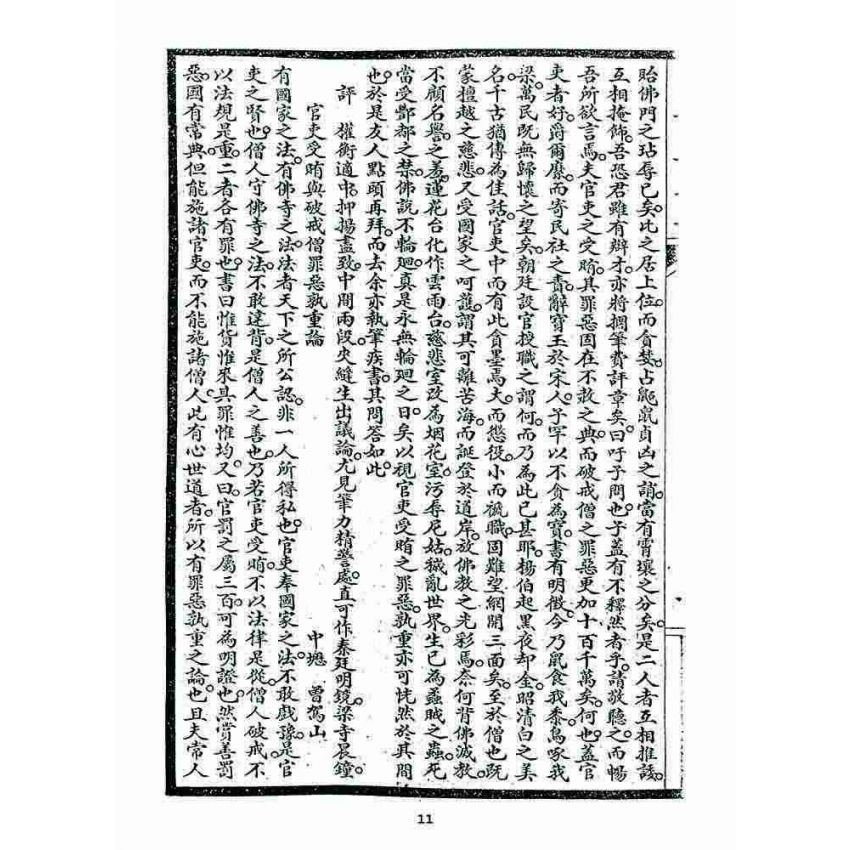 貽佛門之玷辱已矣。此之居上位。而貪婪。占毻窳貞凶之誚。當有霄壤之分矣。是二人者互相推諉。
互相掩飾。吾恐君雖有辯才。亦將擱筆費評章矣。曰吁子問也。子蓋有不釋然者乎。請敬聽之。而暢
吾所欲言焉。夫官吏之受賄。其罪惡固在不赦之典。而破戒僧之罪惡更加十百千萬矣。何也。蓋官
吏者。好爵爾縻。而寄民社之責。辭寶玉於宋人。子罕以不貪為寶。書有明徵。今乃鼠食我黍。鳥啄我
梁。萬民既無歸懷之望矣。朝廷設官授職之謂何。而乃為此已甚耶。楊伯起黑夜却金。昭清白之美
名。千古猶傳為佳話。官吏中而有此貪墨焉。大而懲役。小而褫職。固難望網開三面矣。至於僧也。既
蒙檀越之慈悲。又受國家之呵護。謂其可離苦海。而誕登於道岸。放佛教之光彩焉。奈何背佛滅教。
不顧名譽之羞。蓮花台化作雲雨台。慈悲室改為烟花室。污辱尼姑。穢亂世界。生已為蟊賊之蟲。死
當受酆都之禁。佛說不輪廻。真是永無輪廻之日矣。以視官吏受賄之罪惡。孰重亦可恍然於其間
也。於是友人點頭再拜。而去余亦執筆疾書。其問答如此。
評　權衡適中。抑揚盡致。中間兩段。夾縫生出議論。尤見筆力精警處。直可作秦廷明鏡。梁寺晨鐘。
官吏受賄與破戒僧罪惡孰重論
中壢　曾駕山
有國家之法。有佛寺之法。法者天下之所公認。非一人所得私也。官吏奉國家之法。不敢戲豫。是官
吏之賢也。僧人守佛寺之法。不敢違背。是僧人之善也。乃若官吏受賄。不以法律是從。僧人破戒。不
以法規是重。二者各有罪也。書曰惟貨惟來。其罪惟均。又曰。官罰之屬三百。可為明證也。然賞善罰
惡。國有常典。但能施諸官吏。而不能施諸僧人。此有心世道者。所以有罪惡孰重之論也。且夫常人
11